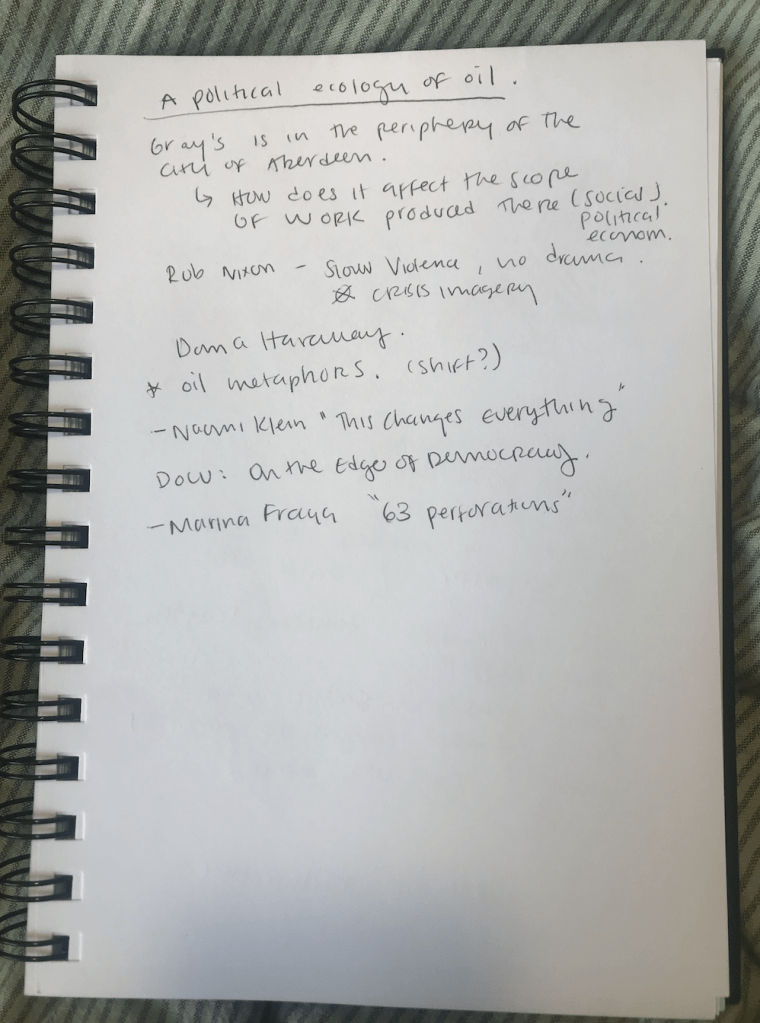 A political ecology of oil.
Gray's is in the periphery of the
city of Aberdeen.
↳ How does it affect the scope
OF WORK produced there (social).
political
econom.
Rob Nixon - Slow Violence, no drama.
CRISIS imagery
Donna Haraway.
* oil metaphors. (shift?)
- Naomi Klein "This Changes everything"
DOCU: On the Edge of Democracy.
- Marina Fraga "63 perforations"